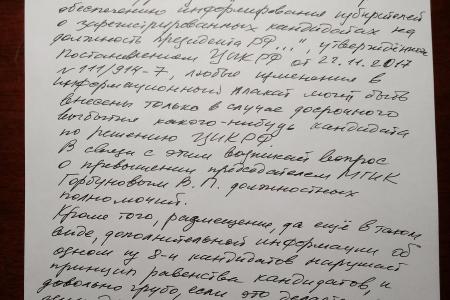 обеспечению информирования избирателей
о зарегистрированных кандидатах на
должность Президента РФ...", утверждённое
Постановлением ЦИК РФ от 22.11.2017
№ 111/914-7, любые изменения в
информационный плакат могут быть
внесены только в случае досрочного
выбытия какого-нибудь кандидата
по решению ЦИК РФ.
В связи с этим возникает вопрос
о превышении председателем МГИК
Горбуновым В. П. должностных
полномочий.
Кроме того, размещение, да ещё в таком
виде, дополнительной информации об
одном из 8-и кандидатов нарушает
принцип равенства кандидатов, и
довольно грубо, если это